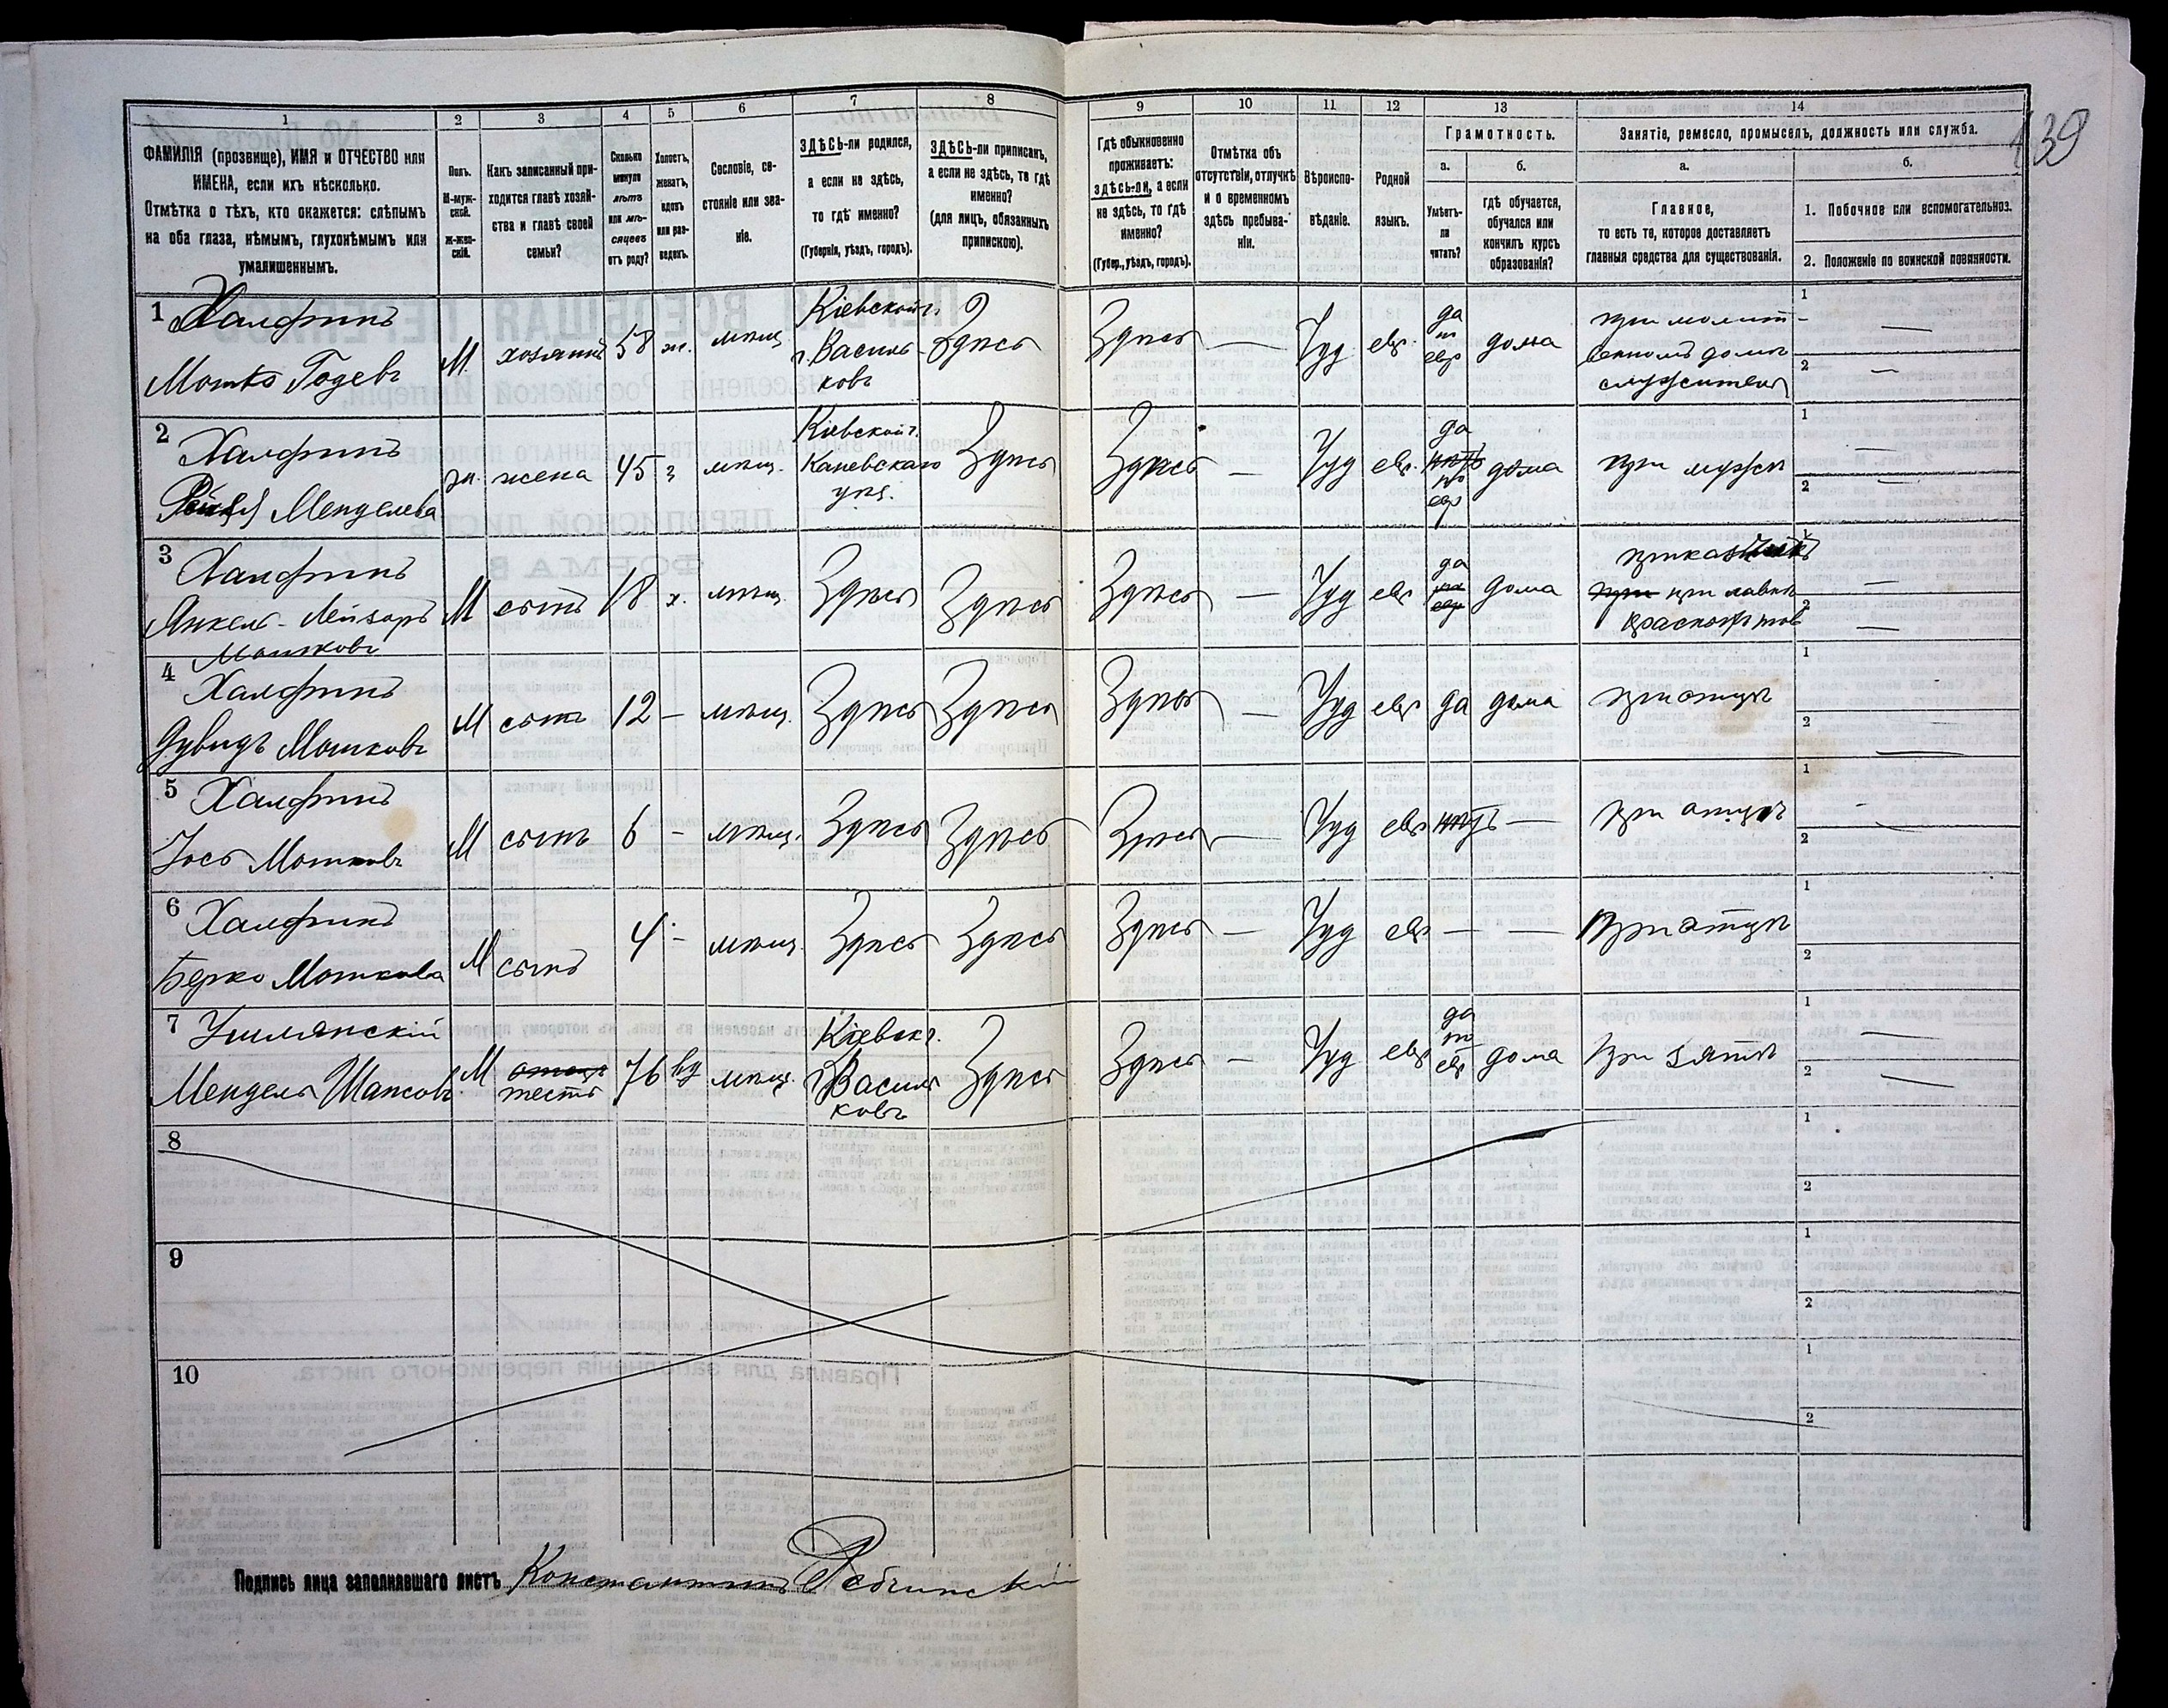 1 2 3 4 5 6 7 8 9 10 11 12 13 14
ФАМИЛІЯ (прозвище), ИМЯ и ОТЧЕСТВО или
ИМЕНА, если ихъ нѣсколько.
Отмѣтка о тѣхъ, кто окажется: слѣпымъ
на оба глаза, нѣмымъ, глухонѣмымъ или
умалишеннымъ.
Полъ.
М-муж-
ской.
Ж-жен-
скій.
Какъ записанный при-
ходится главѣ хозяй-
ства и главѣ своей
семьи?
Сколько
минуло
лѣтъ
или мѣ-
сяцевъ
отъ роду?
Холостъ,
женатъ,
вдовъ
или раз-
веденъ.
Сословіе, со-
стояніе или зва-
ніе.
ЗДѢСЬ-ли родился,
а если не здѣсь,
то гдѣ именно?
(Губернія, уѣздъ, городъ).
ЗДѢСЬ-ли приписанъ,
а если не здѣсь, то гдѣ
именно?
(для лицъ, обязанныхъ
припискою).
Гдѣ обыкновенно
проживаетъ:
здѣсь-ли, а если
не здѣсь, то гдѣ
именно?
(Губер., уѣздъ, городъ).
Отмѣтка объ
отсутствіи, отлучкѣ
и о временномъ
здѣсь пребыва-
ніи.
Вѣроиспо-
вѣданіе.
Родной
языкъ.
Грамотность.
а.
Умѣетъ-
ли
читать?
б.
гдѣ обучается,
обучался или
кончилъ курсъ
образованія?
Занятіе, ремесло, промыселъ, должность или служба.
а.
Главное,
то есть то, которое доставляетъ
главныя средства для существованія.
б.
1. Побочное или вспомогательное.
2. Положеніе по воинской повинности.
139
1 Халфинъ
Мошко Годевъ
М. хозяинъ 58 ж. мѣщ
Кіевской г.
г. Василь-
ковъ
Здѣсь Здѣсь — Іуд евр.
да
по
евр
дома
при молит-
венномъ домѣ
служитель
1 —
2 —
2 Халфинъ
Менделева
ж. жена 45 з мѣщ.
Кіевской г.
Каневскаго
уѣз.
Здѣсь Здѣсь — Іуд евр.
да
нѣтъ
по
евр
дома при мужѣ
1 —
2 —
3 Халфинъ
Янкель-Лейзоръ
Мошковъ
М сынъ 18 х. мѣщ. Здѣсь Здѣсь Здѣсь — Іуд евр
да
по
евр
дома
приказчикъ
при при лавкѣ
красной тов
1 —
2 —
4 Халфинъ
Дувидъ Мошковъ
М сынъ 12 — мѣщ. Здѣсь Здѣсь Здѣсь — Іуд евр да дома при отцѣ
1
2 —
5 Халфинъ
Іось Мошковъ
М сынъ 6 — мѣщ. Здѣсь Здѣсь Здѣсь — Іуд евр нѣтъ — при отцѣ
1 -
2 —
6 Халфинъ
Берко Мошкова
М сынъ 4 — мѣщ. Здѣсь Здѣсь Здѣсь — Іуд евр — — При отцѣ
1
2
7 Ушлянскій
Мендель Шапсовъ
М отецъ
тесть
76 вд мѣщ.
Кіевск г.
г. Василь
ковъ
Здѣсь Здѣсь — Іуд евр
да
по
евр
дома При зятѣ
1 —
2 —
8
1
2
9
1
2
10
1
2
Подпись лица заполнявшаго листъ Константинъ